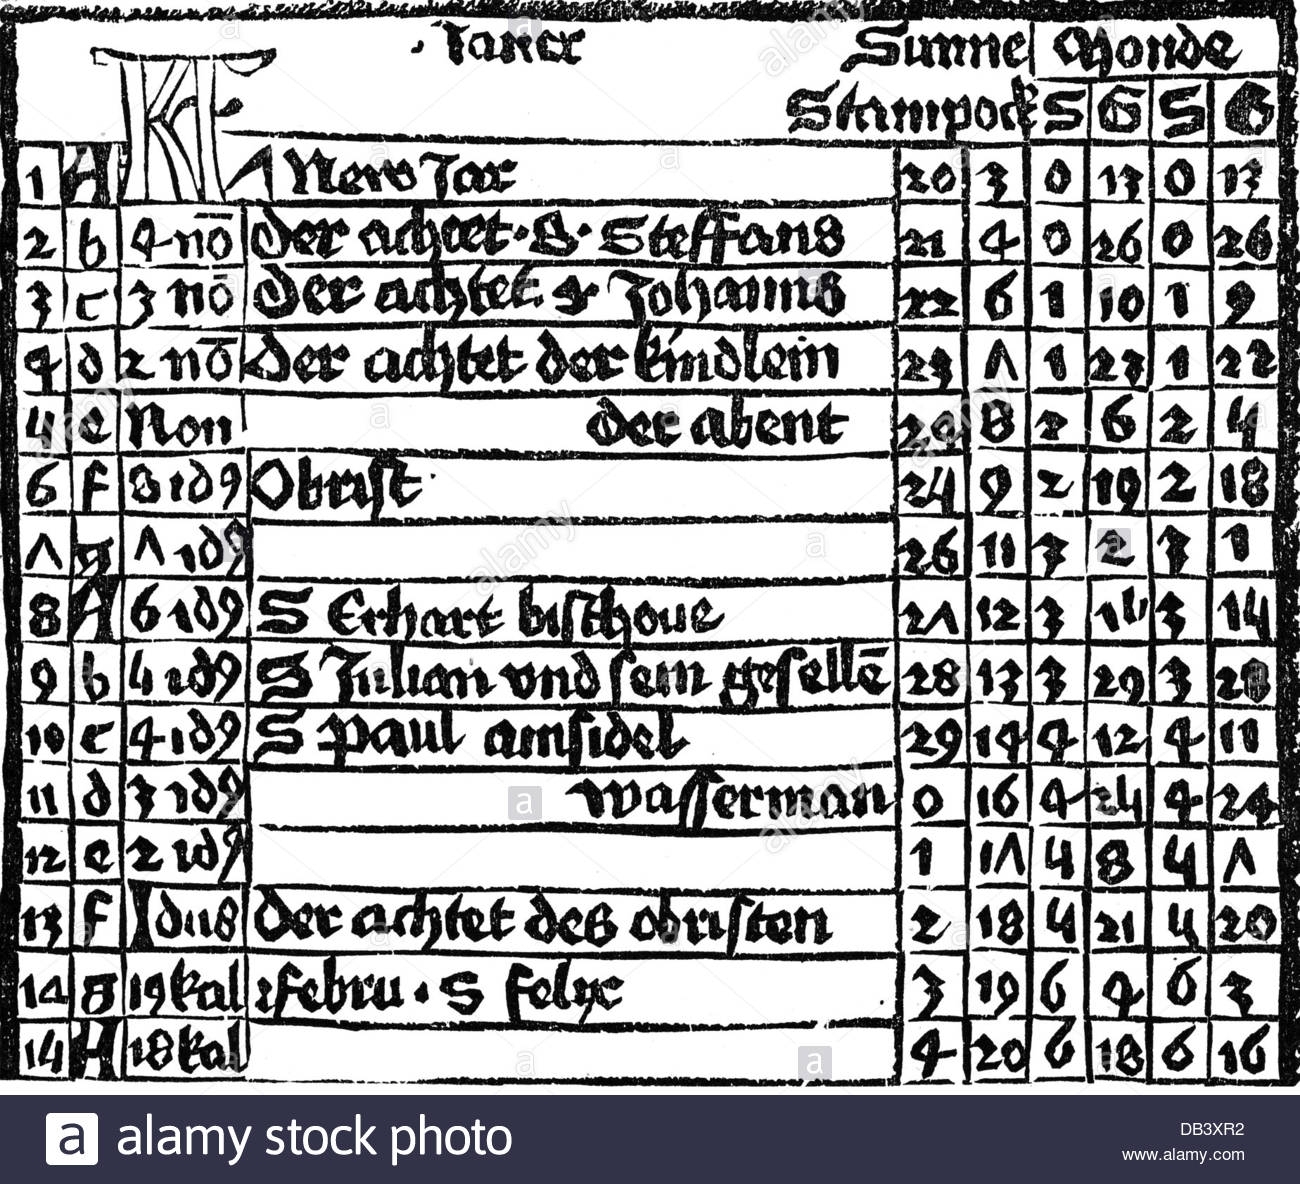 Jander
Sunne Monde
Stainpock S G S G
1 A KL 1 New Jar 20 3 0 13 0 13
2 b 4 nō Der achtet · S · Steffans 21 4 0 26 0 26
3 c 3 nō Der achtet S Johanns 22 6 1 10 1 9
4 d 2 nō Der achtet der kindlein 23 7 1 23 1 22
5 e Non der abent 8 2 6 2 5
6 f 8 id9 Obrist · 25 9 2 19 2 18
7 g 7 id9 26 11 3 2 3 1
8 A 6 id9 S Erhart bischoue 27 12 3 3 15
9 b 5 id9 S Julian vnd sein gesellē 28 13 3 29 3 28
10 c 4 id9 S Paul ainsidel 29 14 4 12 4 11
11 d 3 id9 wasserman 0 16 4 4 24
12 e 2 id9 1 17 5 8 5 7
13 f Idus Der achtet des obristen 2 18 5 21 5 20
14 g 19 kal febru · S felix 3 19 6 4 6 3
15 A 18 kal 4 20 6 18 6 16
a alamy stock photo
DB3XR2
www.alamy.com